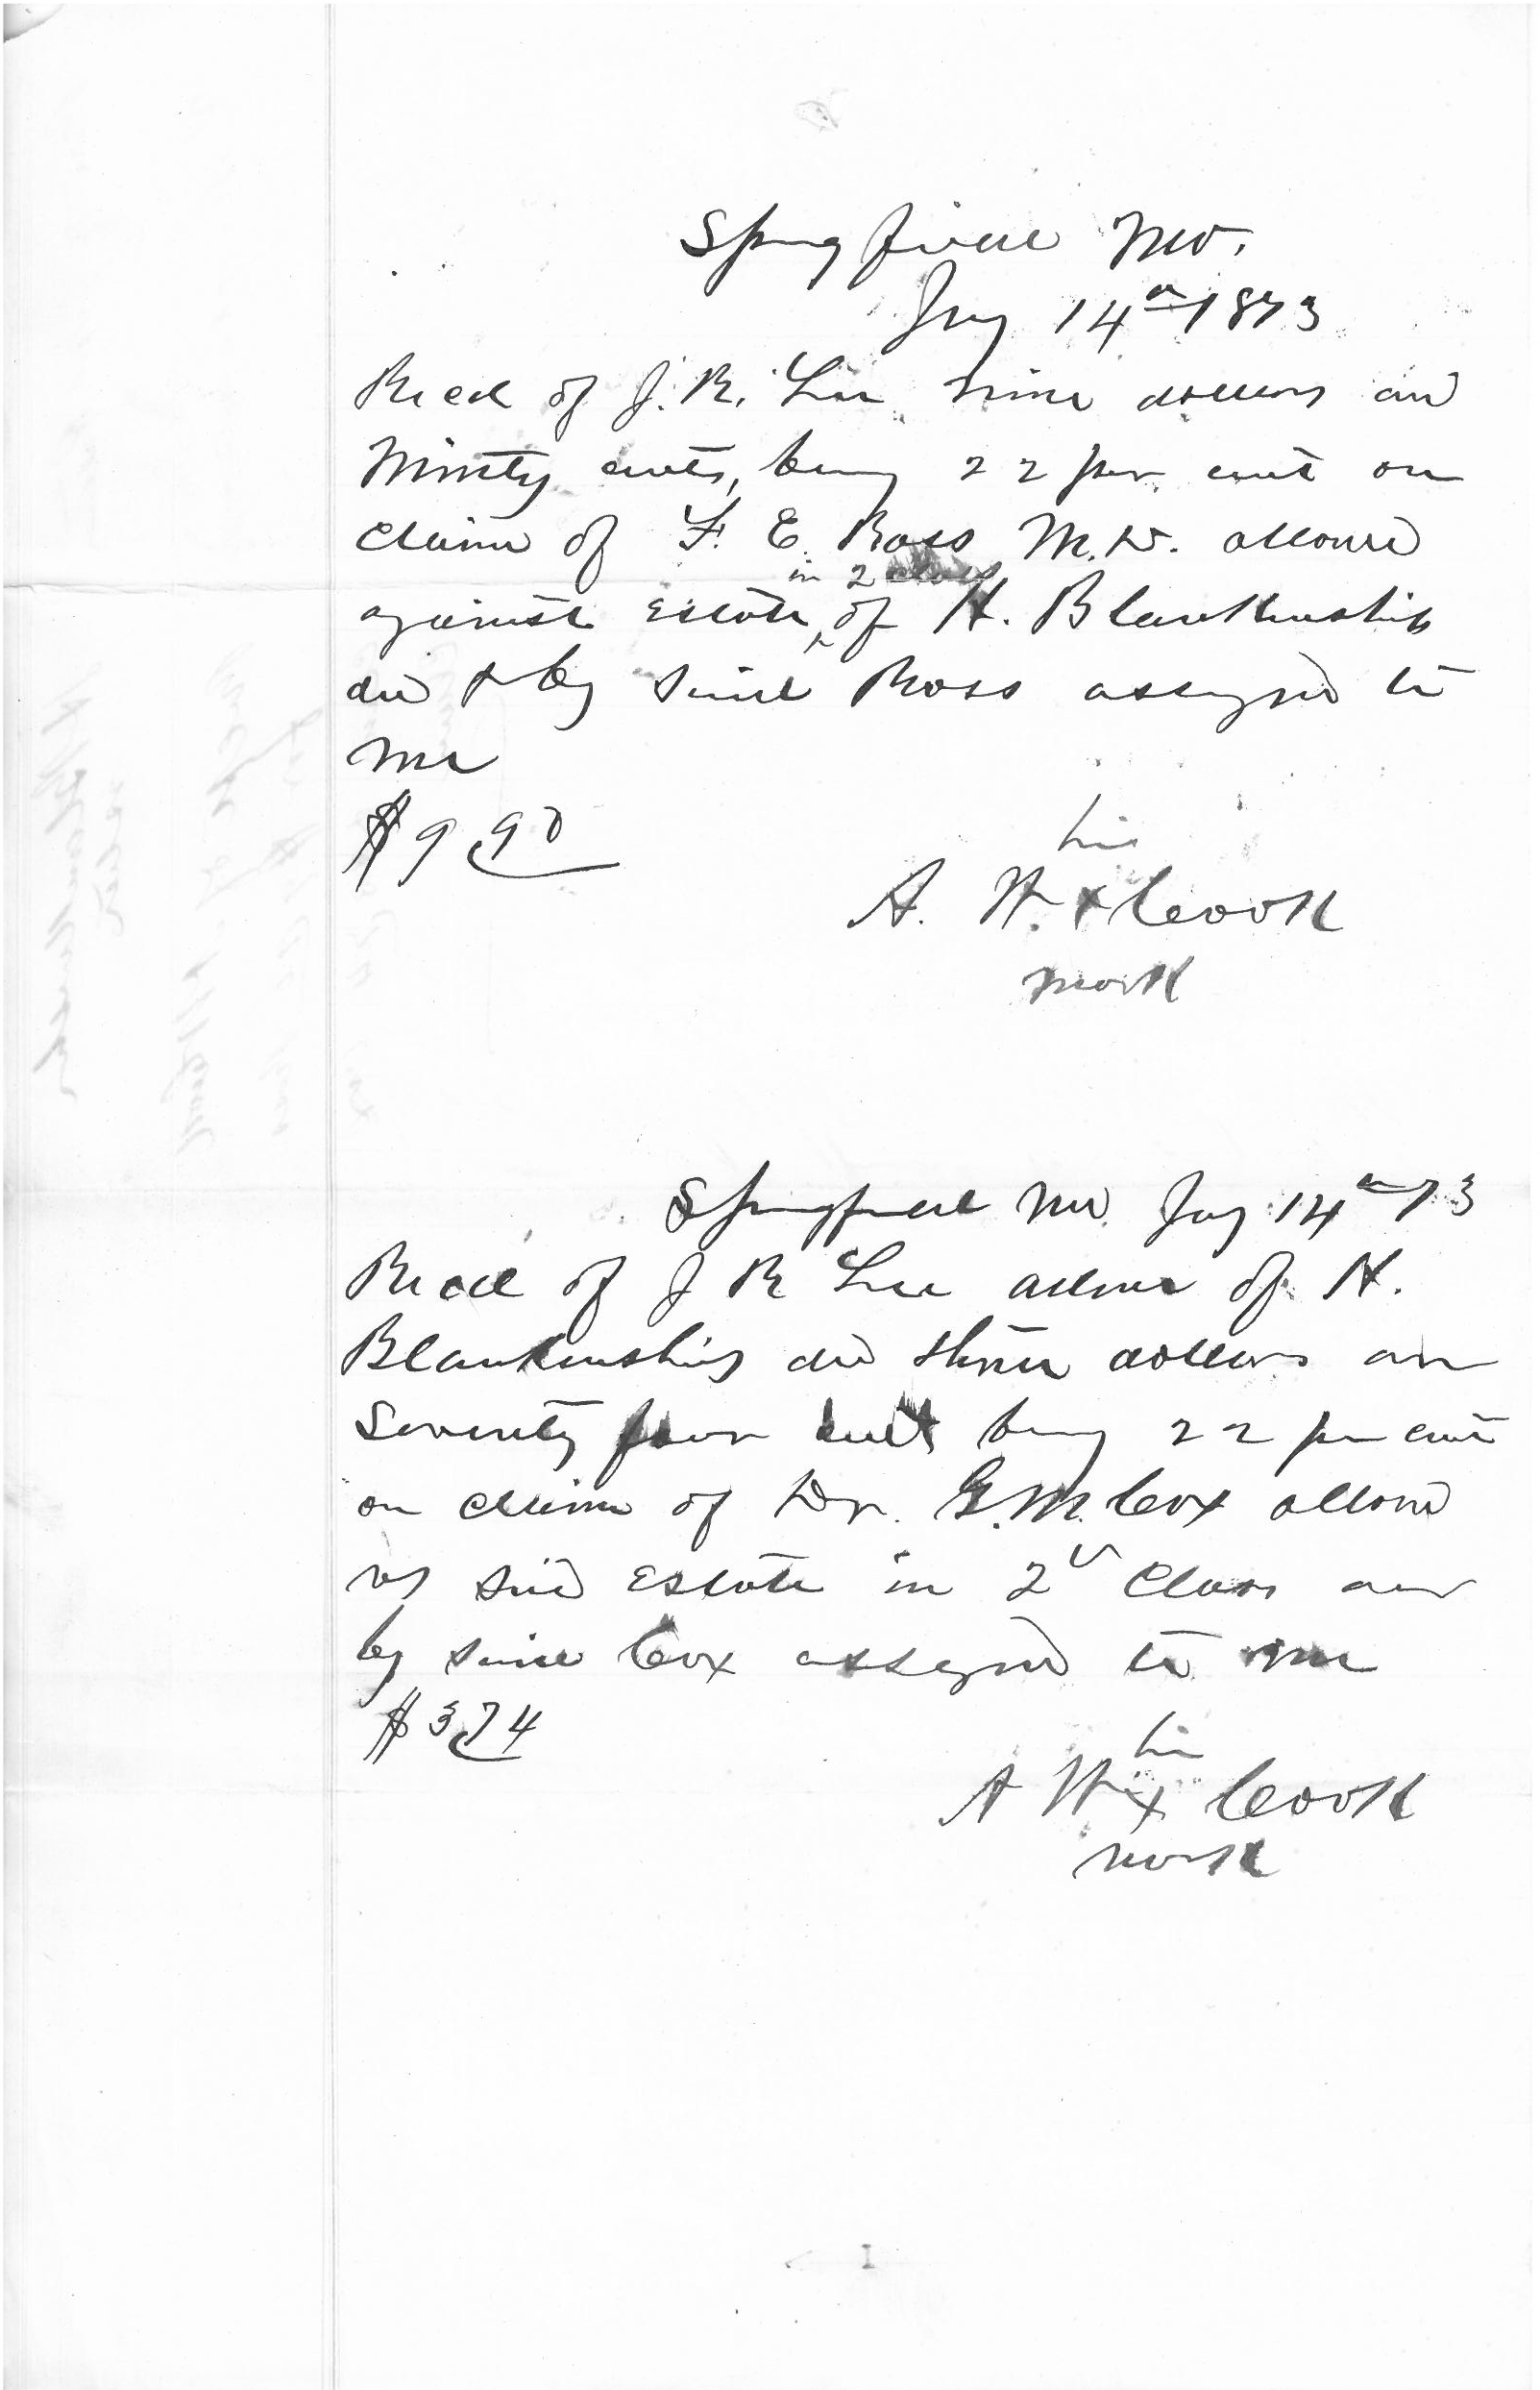 Springfield Mo.
Jny 14th 1873
Recd of J. R. Lee nine dollars and
Ninety cents, being 22 per cent on
claim of F. E. Ross M.D. allowed
in 2 class
against Estate of H. Blankenship
decd & by said Ross assigned to
me
$9 90
his
A. W. x Cook
mark
Springfield Mo. Jny 14th 73
Recd of J R Lee admr of H.
Blankenship decd three dollars and
Seventy four cents being 22 per cent
on claim of Dr. G. M. Cox allowed
vs said Estate in 2d Class and
by said Cox assigned to me
$3 74
his
A W x Cook
mark